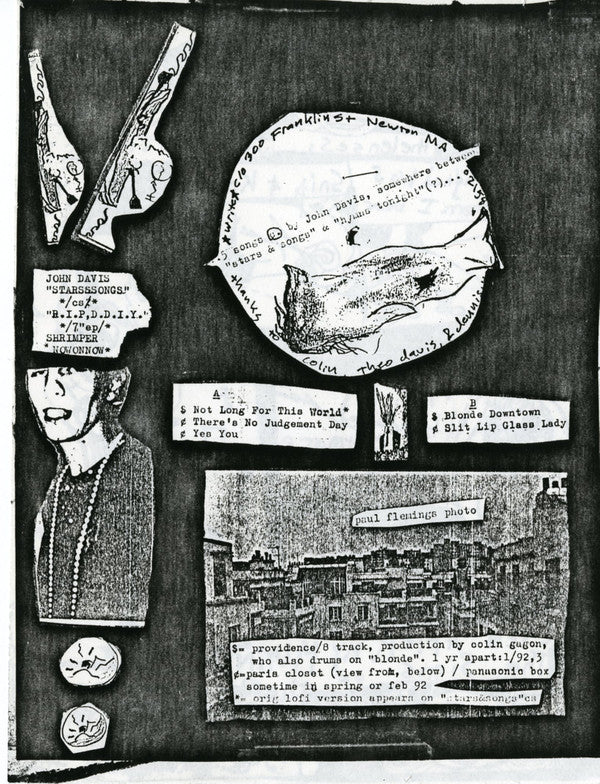 *write: c/o 300 Franklin St Newton MA
5 songs by John Davis, somewhere between
"stars & songs" & "hymns tonight"(?)...
thanks to: Colin Theo davis, & dennis
JOHN DAVIS
"STARS&SONGS"
*/cs/*
"R.I.P,D.D.I.Y."
*/7"ep/*
SHRIMPER
*NOWONNOW*
A
$ Not Long For This World*
¢ There's No Judgement Day
¢ Yes You
B
$ Blonde Downtown
¢ Slit Lip Glass Lady
paul flemings photo
$= providence/8 track, production by colin gagon,
who also drums on "blonde". 1 yr apart:1/92,3
¢=paris closet (view from, below) / panasonic box
sometime in spring or feb 92
*= orig lofi version appears on "stars&songs"cs